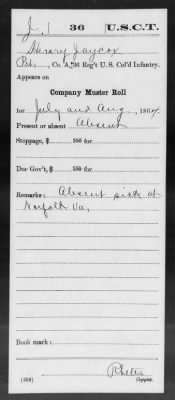 J. | 36 | U.S.C.T.
Henry Jaycox
Pvt., Co. A, 36 Reg't U. S. Col'd Infantry.
Appears on
Company Muster Roll
for July and Aug, 1864.
Present or absent Absent
Stoppage, $ 100 for
Due Gov't, $ 100 for
Remarks: Absent sick at
Norfolk Va,
Book mark:
(358)
Copyist.